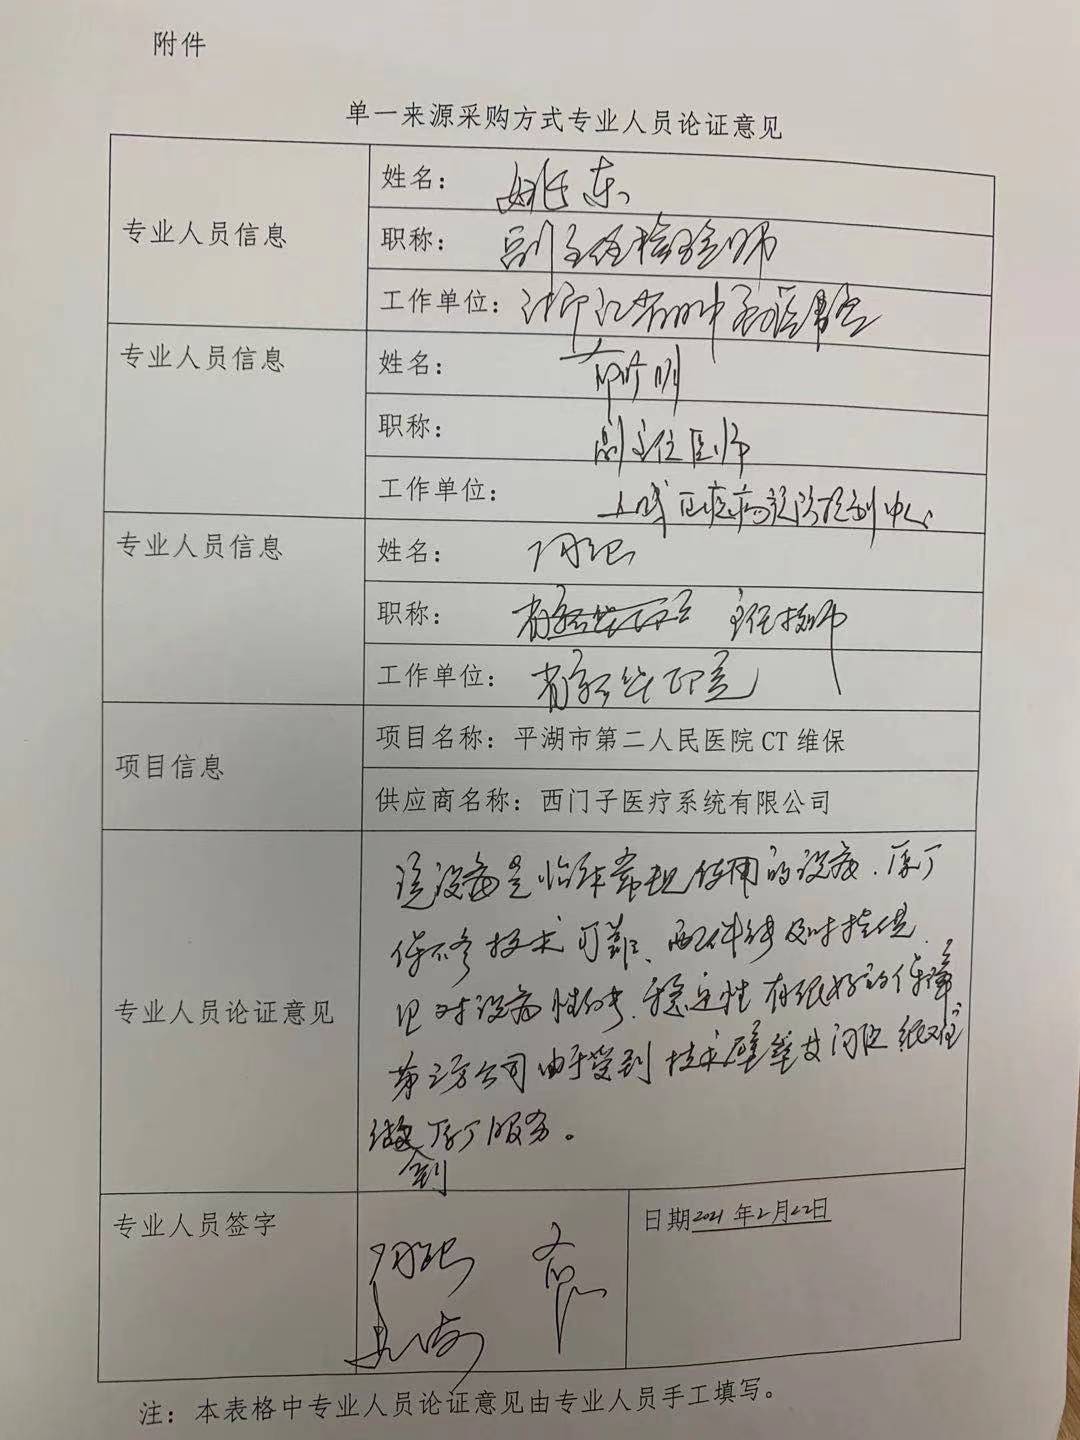 附件
单一来源采购方式专业人员论证意见
专业人员信息
姓名：姚东
职称：副主任检验师
工作单位：浙江省
专业人员信息
姓名：
职称：副主任医师
工作单位：上城区疾病预防控制中心
专业人员信息
姓名：
职称：主任技师
工作单位：
项目信息
项目名称：平湖市第二人民医院CT维保
供应商名称：西门子医疗系统有限公司
专业人员论证意见
该设备是临床常规使用的设备，原厂
保修技术可靠、配件能及时提供，
对设备性能、稳定性有很好的保障
第三方公司由于受到技术壁垒等问题很难
做到原厂服务。
专业人员签字
日期2021年2月22日
注：本表格中专业人员论证意见由专业人员手工填写。